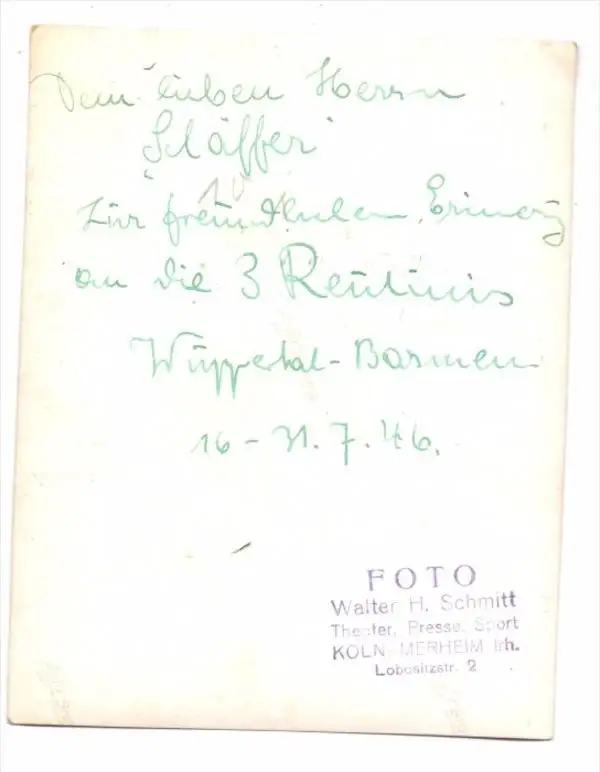 Dem lieben Herrn
"Schäffer"
Zur freundlichen Erinerg
an die 3 Reutinis
Wuppertal-Barmen
16-31.7.46.
FOTO
Walter H. Schmitt
Theater, Presse, Sport
KÖLN-MERHEIM lrh.
Lobositzstr. 2